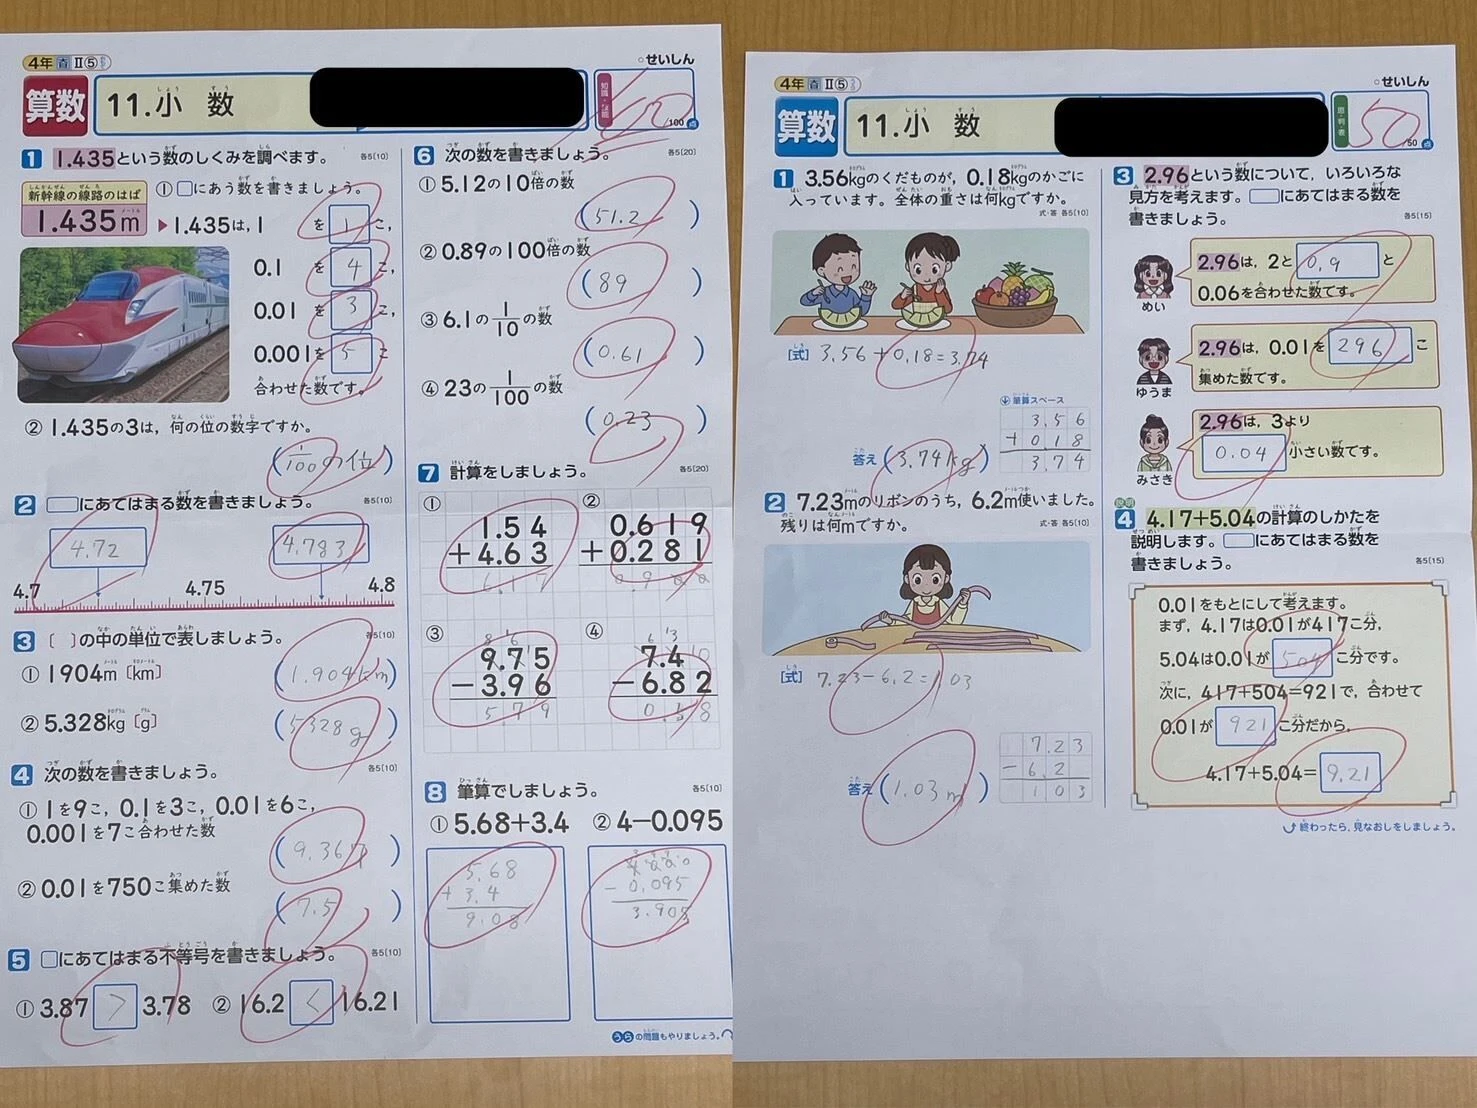 4年 吉 Ⅱ⑤
○せいしん
算数
11.小数
100点
1 1.435という数のしくみを調べます。 各5(10)
新幹線の線路のはば
1.435m
① □にあう数を書きましょう。
▶1.435は,1を 1 こ,
0.1を 4 こ,
0.01を 3 こ,
0.001を 5 こ
合わせた数です。
② 1.435の3は,何の位の数字ですか。
(1/100の位)
2 □にあてはまる数を書きましょう。 各5(10)
4.72 4.783
4.7 4.75 4.8
3 〔 〕の中の単位で表しましょう。 各5(10)
① 1904m〔km〕 (1.904km)
② 5.328kg〔g〕 (5328g)
4 次の数を書きましょう。 各5(10)
① 1を9こ,0.1を3こ,0.01を6こ,
0.001を7こ合わせた数
(9.367)
② 0.01を750こ集めた数
(7.5)
5 □にあてはまる不等号を書きましょう。 各5(10)
① 3.87 > 3.78 ② 16.2 < 16.21
6 次の数を書きましょう。 各5(20)
① 5.12の10倍の数
(51.2)
② 0.89の100倍の数
(89)
③ 6.1の1/10の数
(0.61)
④ 23の1/100の数
(0.23)
7 計算をしましょう。 各5(20)
① ②
1.54 0.619
+4.63 +0.281
6.17 0.900
③ ④
9.75 7.4
-3.96 -6.82
5.79 0.58
8 筆算でしましょう。 各5(10)
① 5.68+3.4 ② 4-0.095
5.68
+3.4
9.08
-0.095
3.905
うらの問題もやりましょう。
4年 吉 Ⅱ⑤
○せいしん
算数
11.小数
50
50点
1 3.56kgのくだものが,0.18kgのかごに
入っています。全体の重さは何kgですか。
式・答 各5(10)
[式] 3.56+0.18=3.74
筆算スペース
3.56
+018
3.74
答え(3.74kg)
2 7.23mのリボンのうち,6.2m使いました。
残りは何mですか。 式・答 各5(10)
[式] 7.23-6.2=1.03
7.23
-6.2
103
答え(1.03m)
3 2.96という数について,いろいろな
見方を考えます。□にあてはまる数を
書きましょう。 各5(15)
2.96は,2と 0.9 と
0.06を合わせた数です。
めい
2.96は,0.01を 296 こ
集めた数です。
ゆうま
2.96は,3より
0.04 小さい数です。
みさき
説明
4 4.17+5.04の計算のしかたを
説明します。□にあてはまる数を
書きましょう。 各5(15)
0.01をもとにして考えます。
まず,4.17は0.01が417こ分,
5.04は0.01が 504 こ分です。
次に,417+504=921で,合わせて
0.01が 921 こ分だから,
4.17+5.04= 9.21
終わったら,見なおしをしましょう。